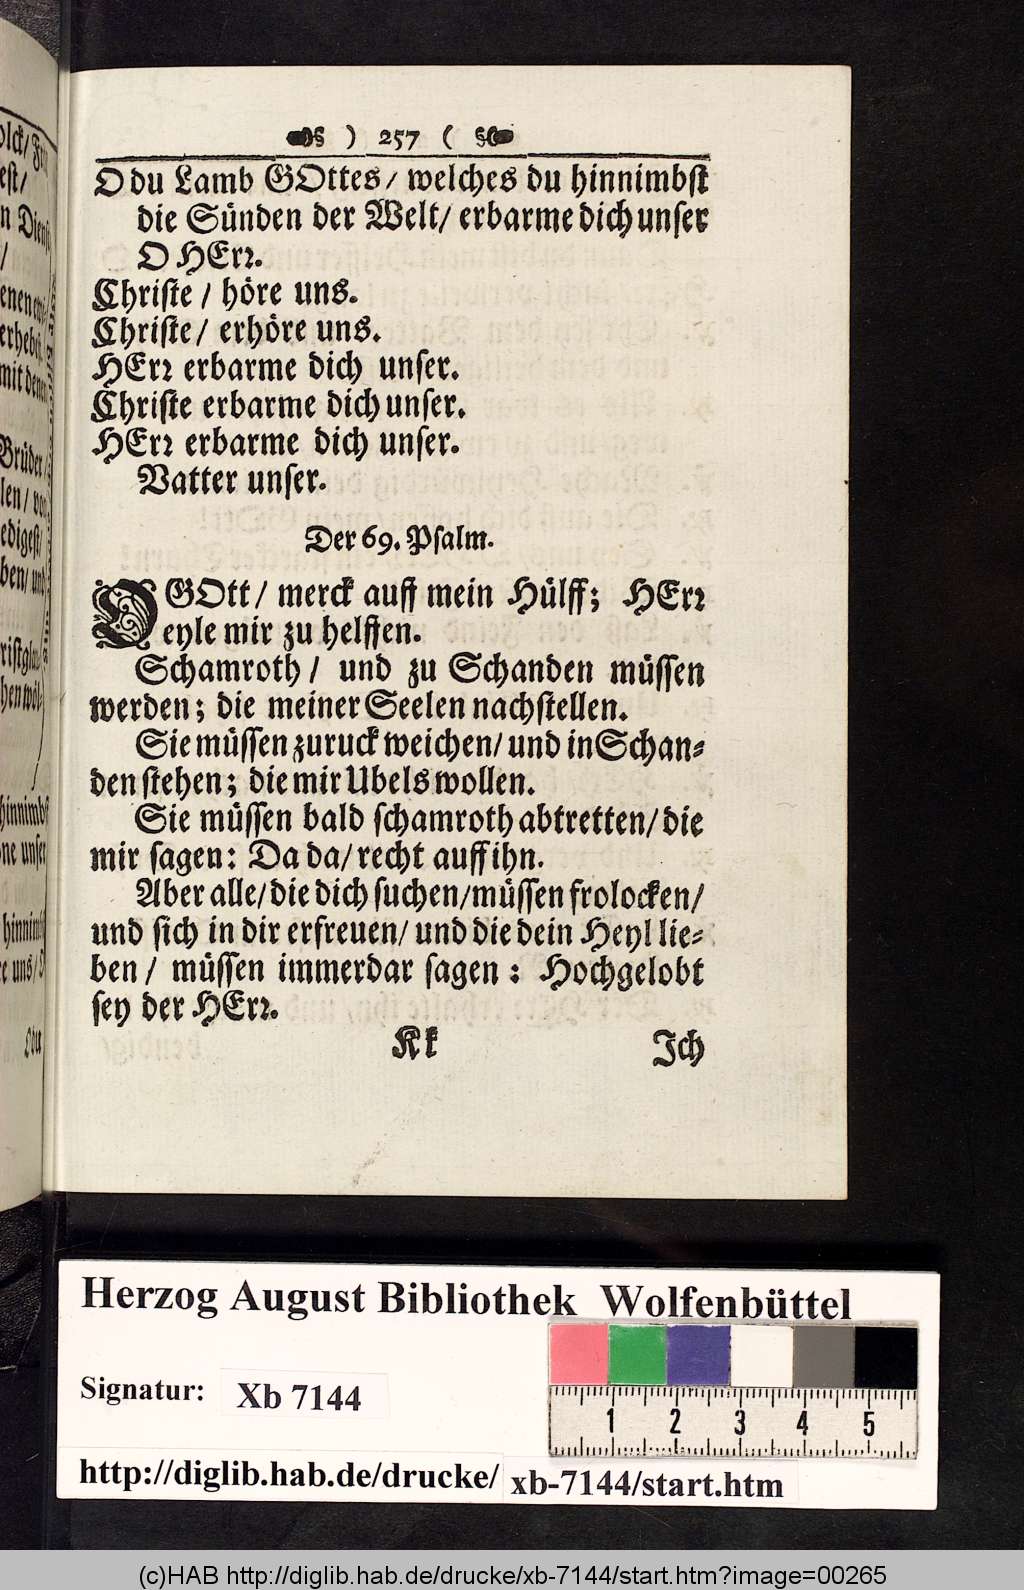 ) 257 (
O du Lamb GOttes / welches du hinnimbst
die Sünden der Welt / erbarme dich unser
O HErr.
Christe / höre uns.
Christe / erhöre uns.
HErr erbarme dich unser.
Christe erbarme dich unser.
HErr erbarme dich unser.
Vatter unser.
Der 69. Psalm.
O GOtt / merck auff mein Hülff; HErr
eyle mir zu helffen.
Schamroth / und zu Schanden müssen
werden; die meiner Seelen nachstellen.
Sie müssen zuruck weichen / und in Schan-
den stehen; die mir Ubels wollen.
Sie müssen bald schamroth abtretten / die
mir sagen: Da da / recht auff ihn.
Aber alle / die dich suchen / müssen frolocken /
und sich in dir erfreuen / und die dein Heyl lie-
ben / müssen immerdar sagen: Hochgelobt
sey der HErr.
Kk Ich
Herzog August Bibliothek Wolfenbüttel
Signatur: Xb 7144
1 2 3 4 5
http://diglib.hab.de/drucke/ xb-7144/start.htm
(c)HAB http://diglib.hab.de/drucke/xb-7144/start.htm?image=00265